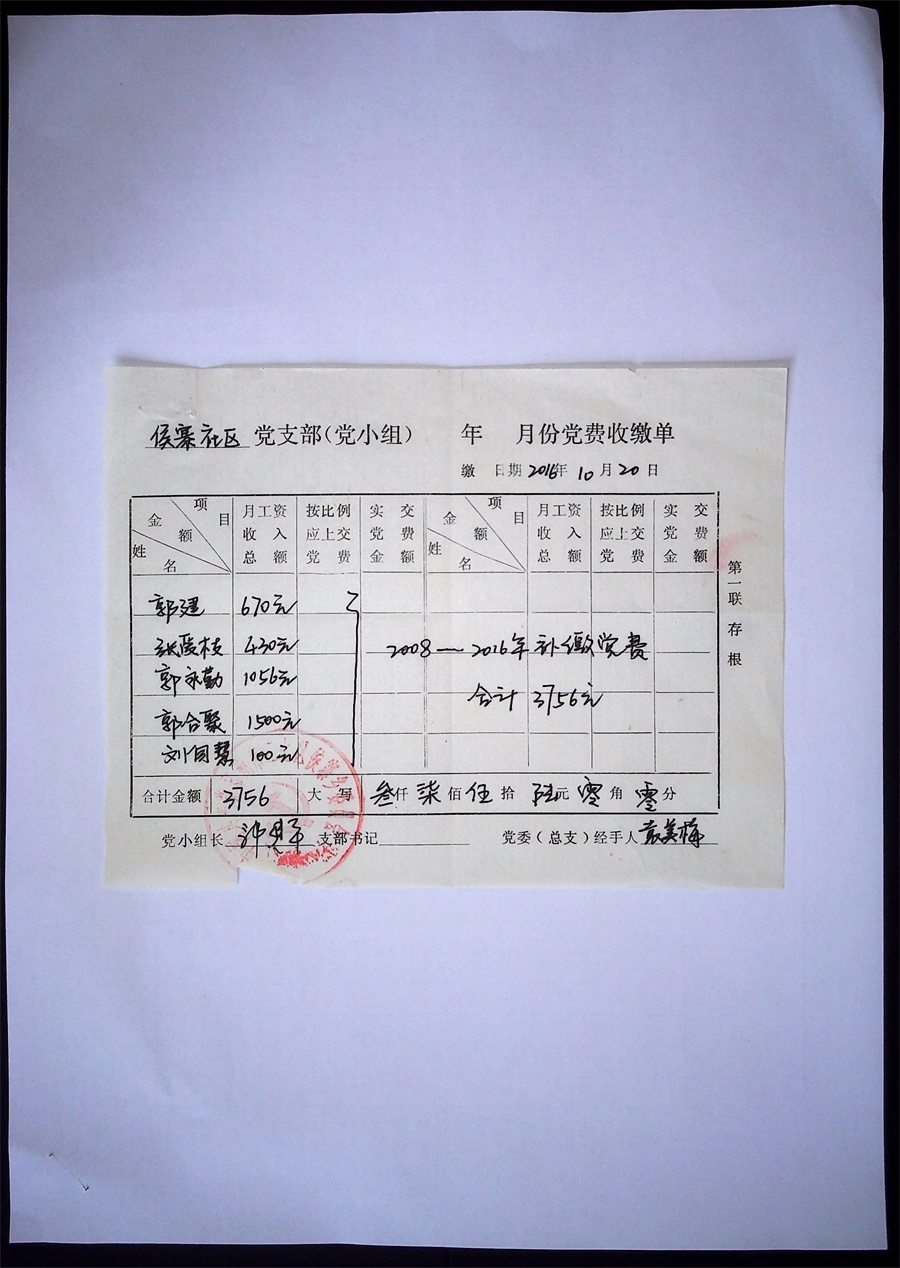 侯寨社区 党支部(党小组) 年 月份党费收缴单
缴 日期 2016年 10月 20日
项目 金额 姓名 月工资收入总额 按比例应上交党费 实交党费金额 项目 金额 姓名 月工资收入总额 按比例应上交党费 实交党费金额
郭建 670元
张霞枝 430元
2008—2016年补缴党费
郭永勤 1056元
合计 3756元
郭合聚 1500元
刘自慧 100元
合计金额 3756 大写 叁仟柒佰伍拾陆元零角零分
党小组长 支部书记 党委(总支)经手人 袁美梅
第一联 存根